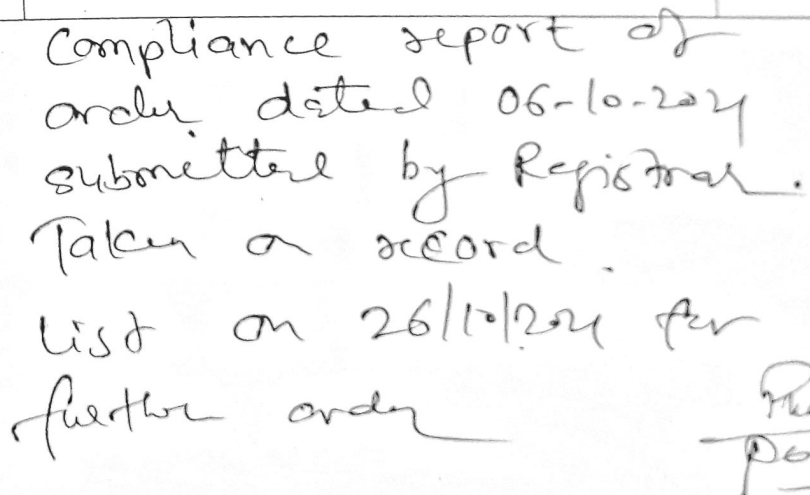 Compliance report of
order dated 06-10-2021
submitted by Registrar.
Taken on record.
List on 26/10/2021 for
further order